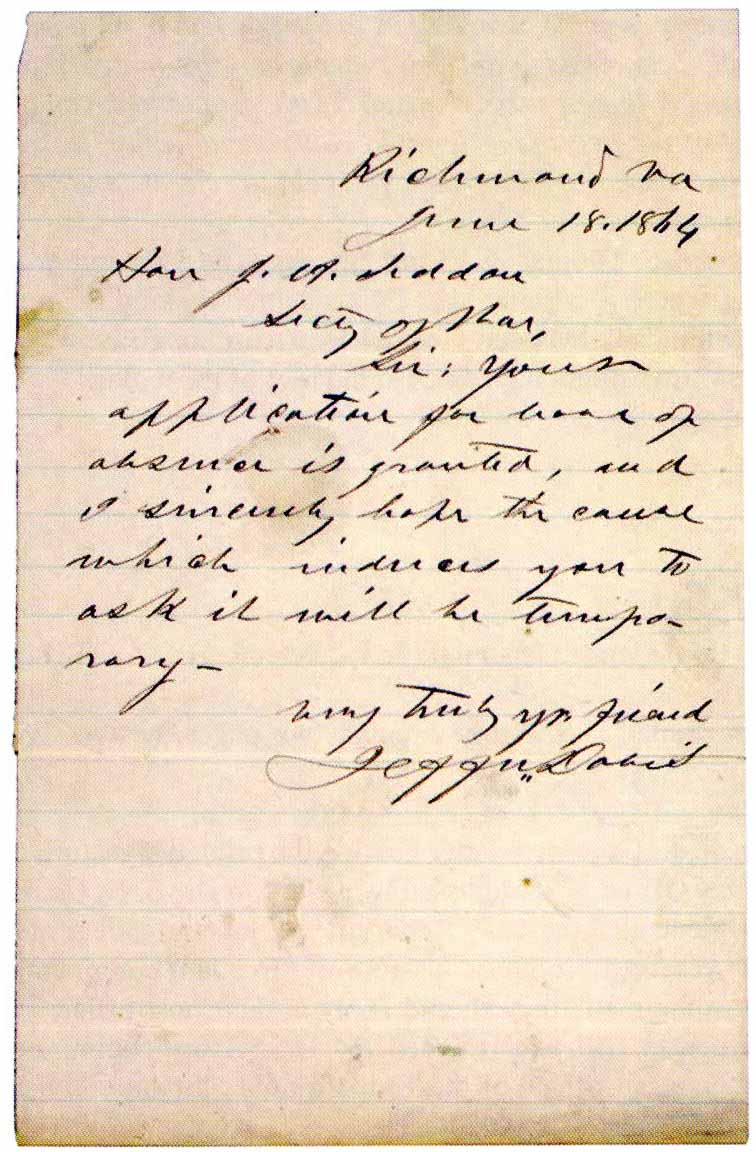 Richmond Va
June 18. 1864
Hon J. A. Seddon
Secty of War,
Sir; Your
application for leave of
absence is granted, and
I sincerely hope the cause
which induces you to
ask it will be tempo-
rary—
very truly yr. friend
Jeffn. Davis